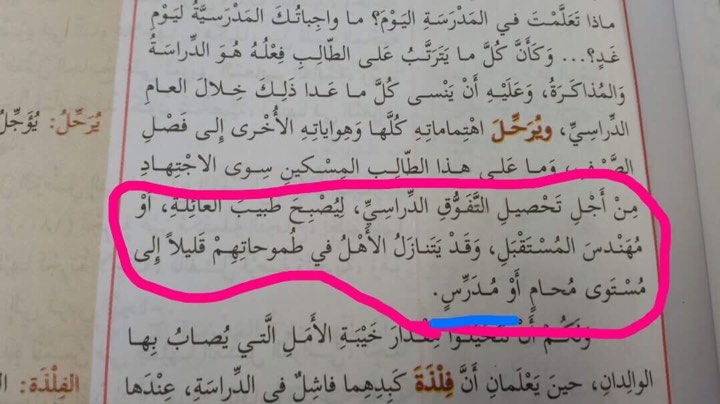 ماذا تَعَلَّمْتَ في المَدْرَسَةِ اليَوْمَ؟ ما واجِباتُكَ المَدْرَسِيَّةُ لِيَوْمِ
غَدٍ؟... وَكَأَنَّ كُلَّ ما يَتَرَتَّبُ عَلى الطّالِبِ فِعْلُهُ هُوَ الدِّراسَةُ
وَالمُذاكَرَةُ، وَعَلَيْهِ أَنْ يَنْسى كُلَّ ما عَدا ذَلِكَ خِلالَ العامِ
يُرَحِّلُ: يُؤَجِّلُ
الدِّراسِيِّ، ويُرَحِّلَ اهْتِماماتِهِ كُلَّها وَهِواياتِهِ الأُخْرى إِلى فَصْلِ
الصَّيْفِ، وَما عَلى هذا الطّالِبِ المِسْكينِ سِوى الاجْتِهادِ
مِنْ أَجْلِ تَحْصيلِ التَّفَوُّقِ الدِّراسِيِّ، لِيُصْبِحَ طَبيبَ العائِلَةِ، أَوْ
مُهَنْدِسَ المُسْتَقْبَلِ، وَقَدْ يَتَنازَلُ الأَهْلُ في طُموحاتِهِمْ قَليلاً إِلى
مُسْتَوى مُحامٍ أَوْ مُدَرِّسٍ.
وَلَكُمْ أَنْ تَتَخَيَّلُوا مِقْدارَ خَيْبَةِ الأَمَلِ الَّتي يُصابُ بِها
الوالِدانِ، حينَ يَعْلَمانِ أَنَّ فِلْذَةَ كَبِدِهِما فاشِلٌ في الدِّراسَةِ، عِنْدَها
الفِلْذَة: